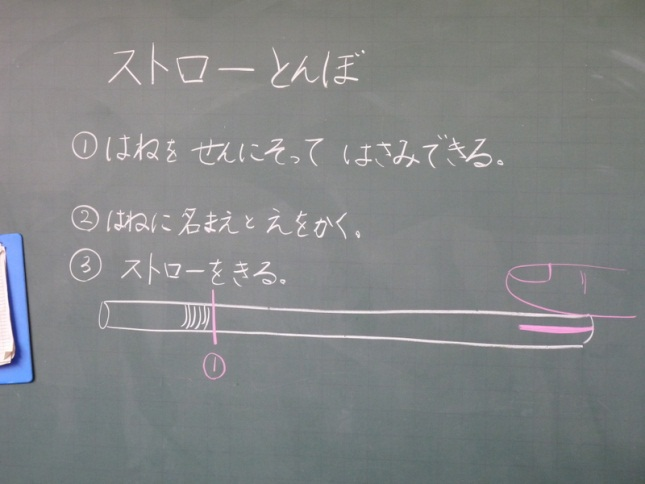 ストローとんぼ
①はねを せんにそって はさみできる。
②はねに名まえとえをかく。
③ ストローをきる。
①